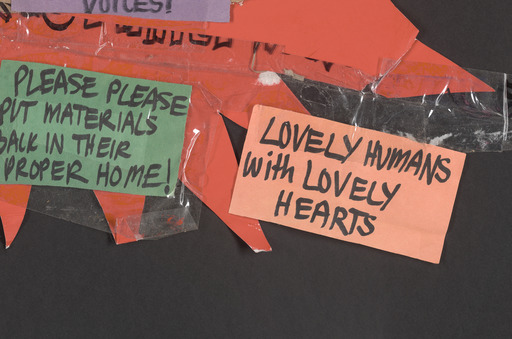 VOICES!
PLEASE PLEASE
PUT MATERIALS
BACK IN THEIR
PROPER HOME!
LOVELY HUMANS
with LOVELY
HEARTS